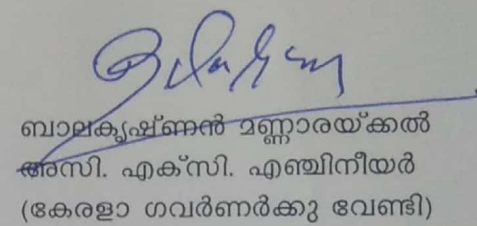 ബാലകൃഷ്ണൻ മണ്ണാരയ്ക്കൽ
അസി. എക്സി. എഞ്ചിനീയർ
(കേരളാ ഗവർണർക്കു വേണ്ടി)